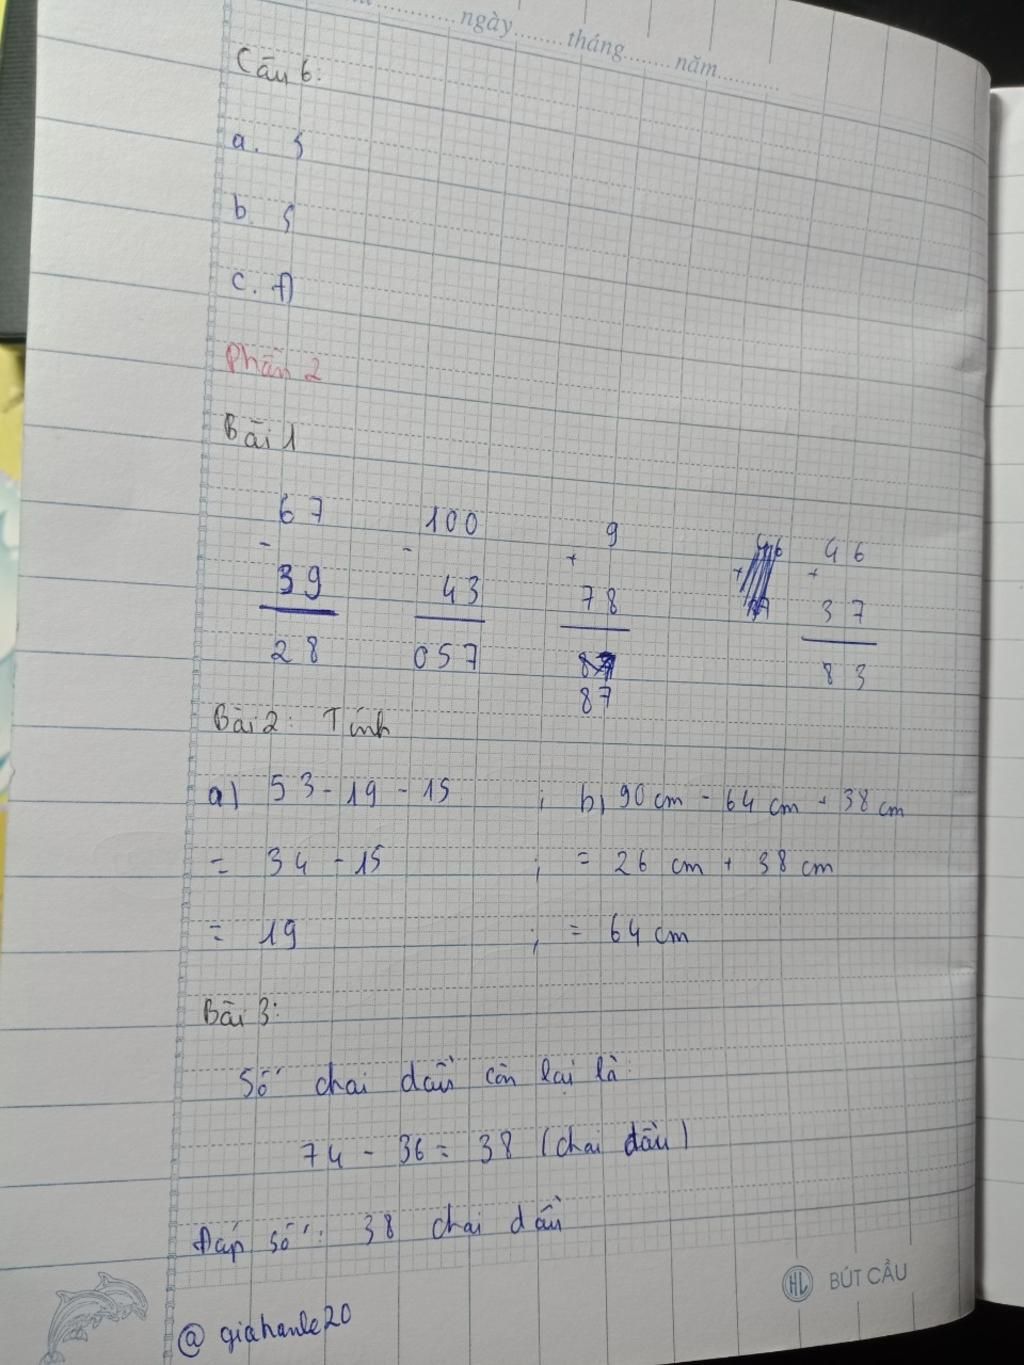 ngày........tháng........năm.........
Câu 6:
a. S
b. S
c. Đ
Phần 2
Bài 1
67 100 9 46
- - + +
39 43 78 37
28 057 87 83
Bài 2: Tính
a) 53 - 19 - 15 ; b) 90 cm - 64 cm + 38 cm
= 34 - 15 ; = 26 cm + 38 cm
= 19 ; = 64 cm
Bài 3:
Số chai dầu còn lại là:
74 - 36 = 38 (chai dầu)
Đáp số: 38 chai dầu
HL BÚT CẦU
@ giahanle20